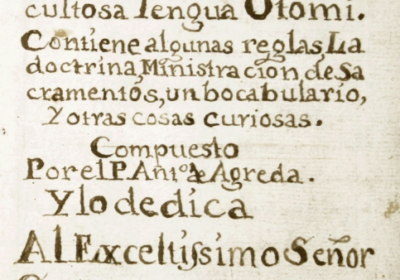 cultosa lengua Otomi.
Contiene algunas reglas, La
doctrina, Ministracion, de Sa
cramentos, un bocabulario,
Y otras cosas curiosas.
Compuesto
Por el P. Antº. de Agreda.
Y lo dedica
Al Exceltissimo Señor